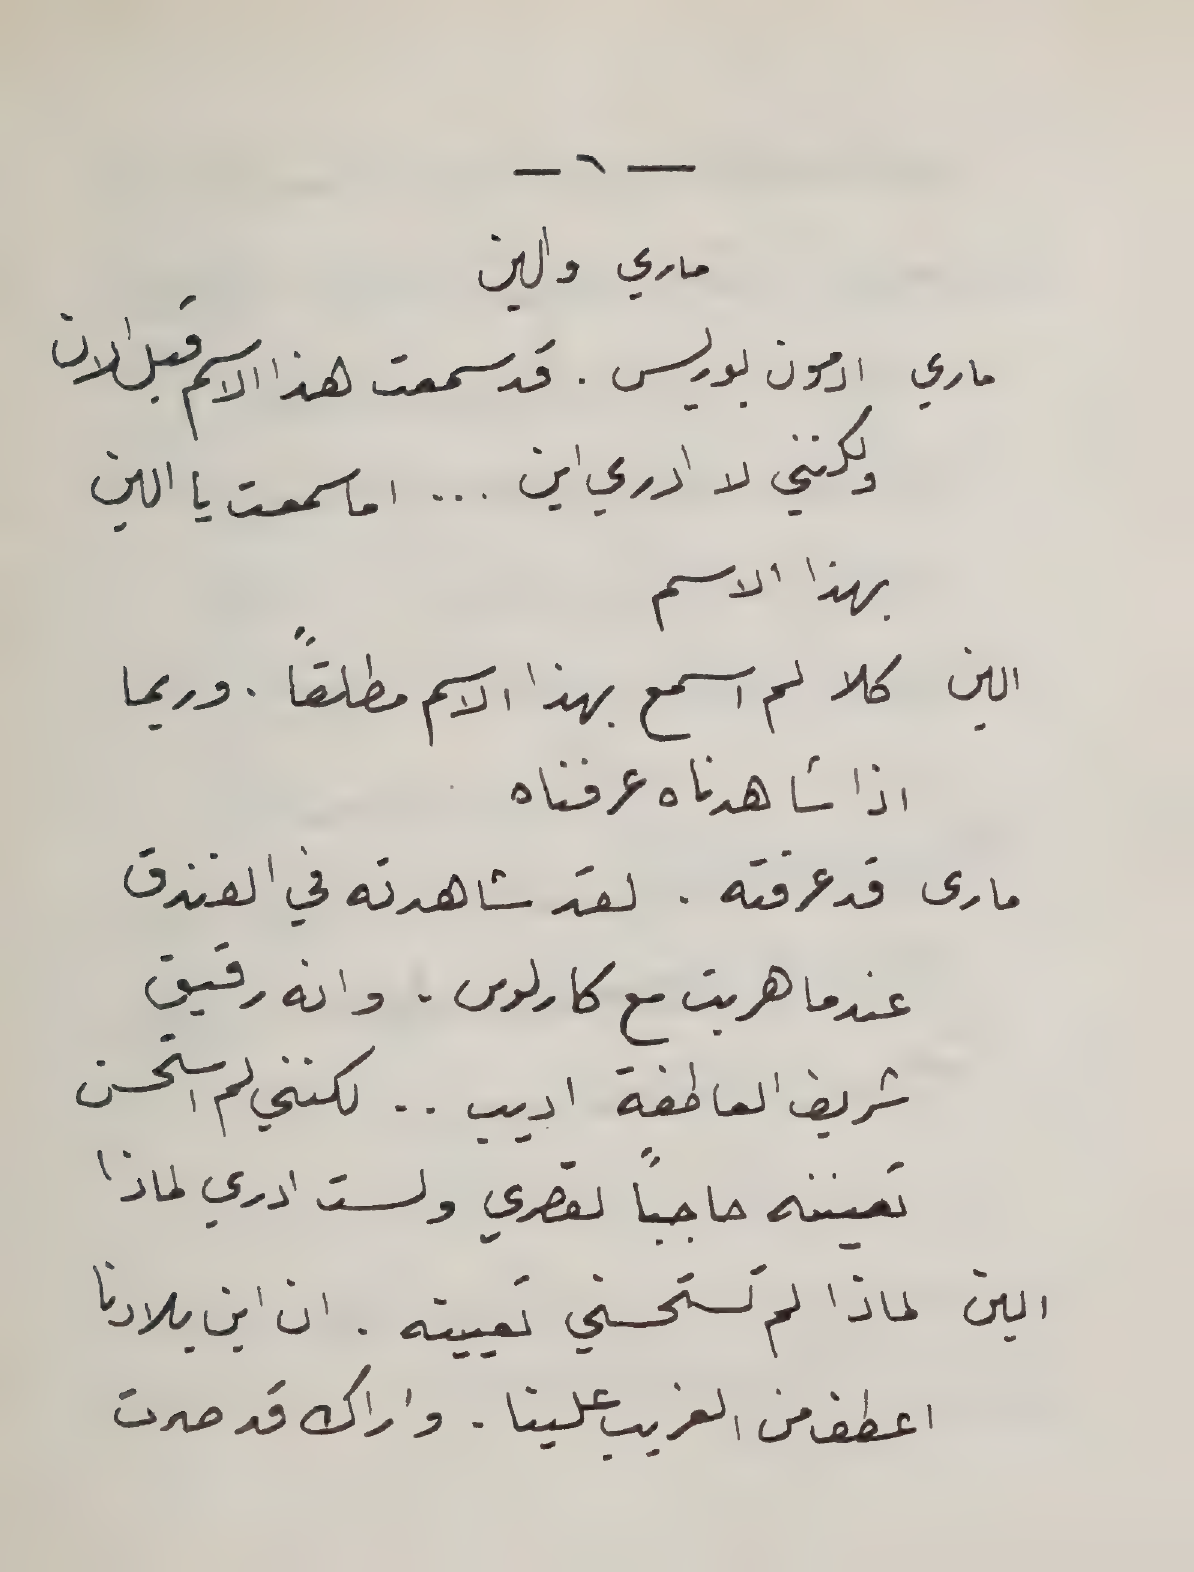 — ٦ —
ماري والين
ماري ادمون بوريس . قد سمعت هذا الاسم قبل الان
ولكنني لا ادري اين ... اما سمعت يا الين
بهذا الاسم
الين كلا لم اسمع بهذا الاسم مطلقاً . وربما
اذا شاهدناه عرفناه
مارى قد عرفته . لقد شاهدته في الفندق
عندما هربت مع كارلوس . وانه رقيق
شريف العاطفة اديب .. لكنني لم استحسن
تعيينه حاجباً لقصري ولست ادري لماذا
الين لماذا لم تستحسني تعيينه . ان ابن بلادنا
اعطف من الغريب علينا . واراك قد صرت